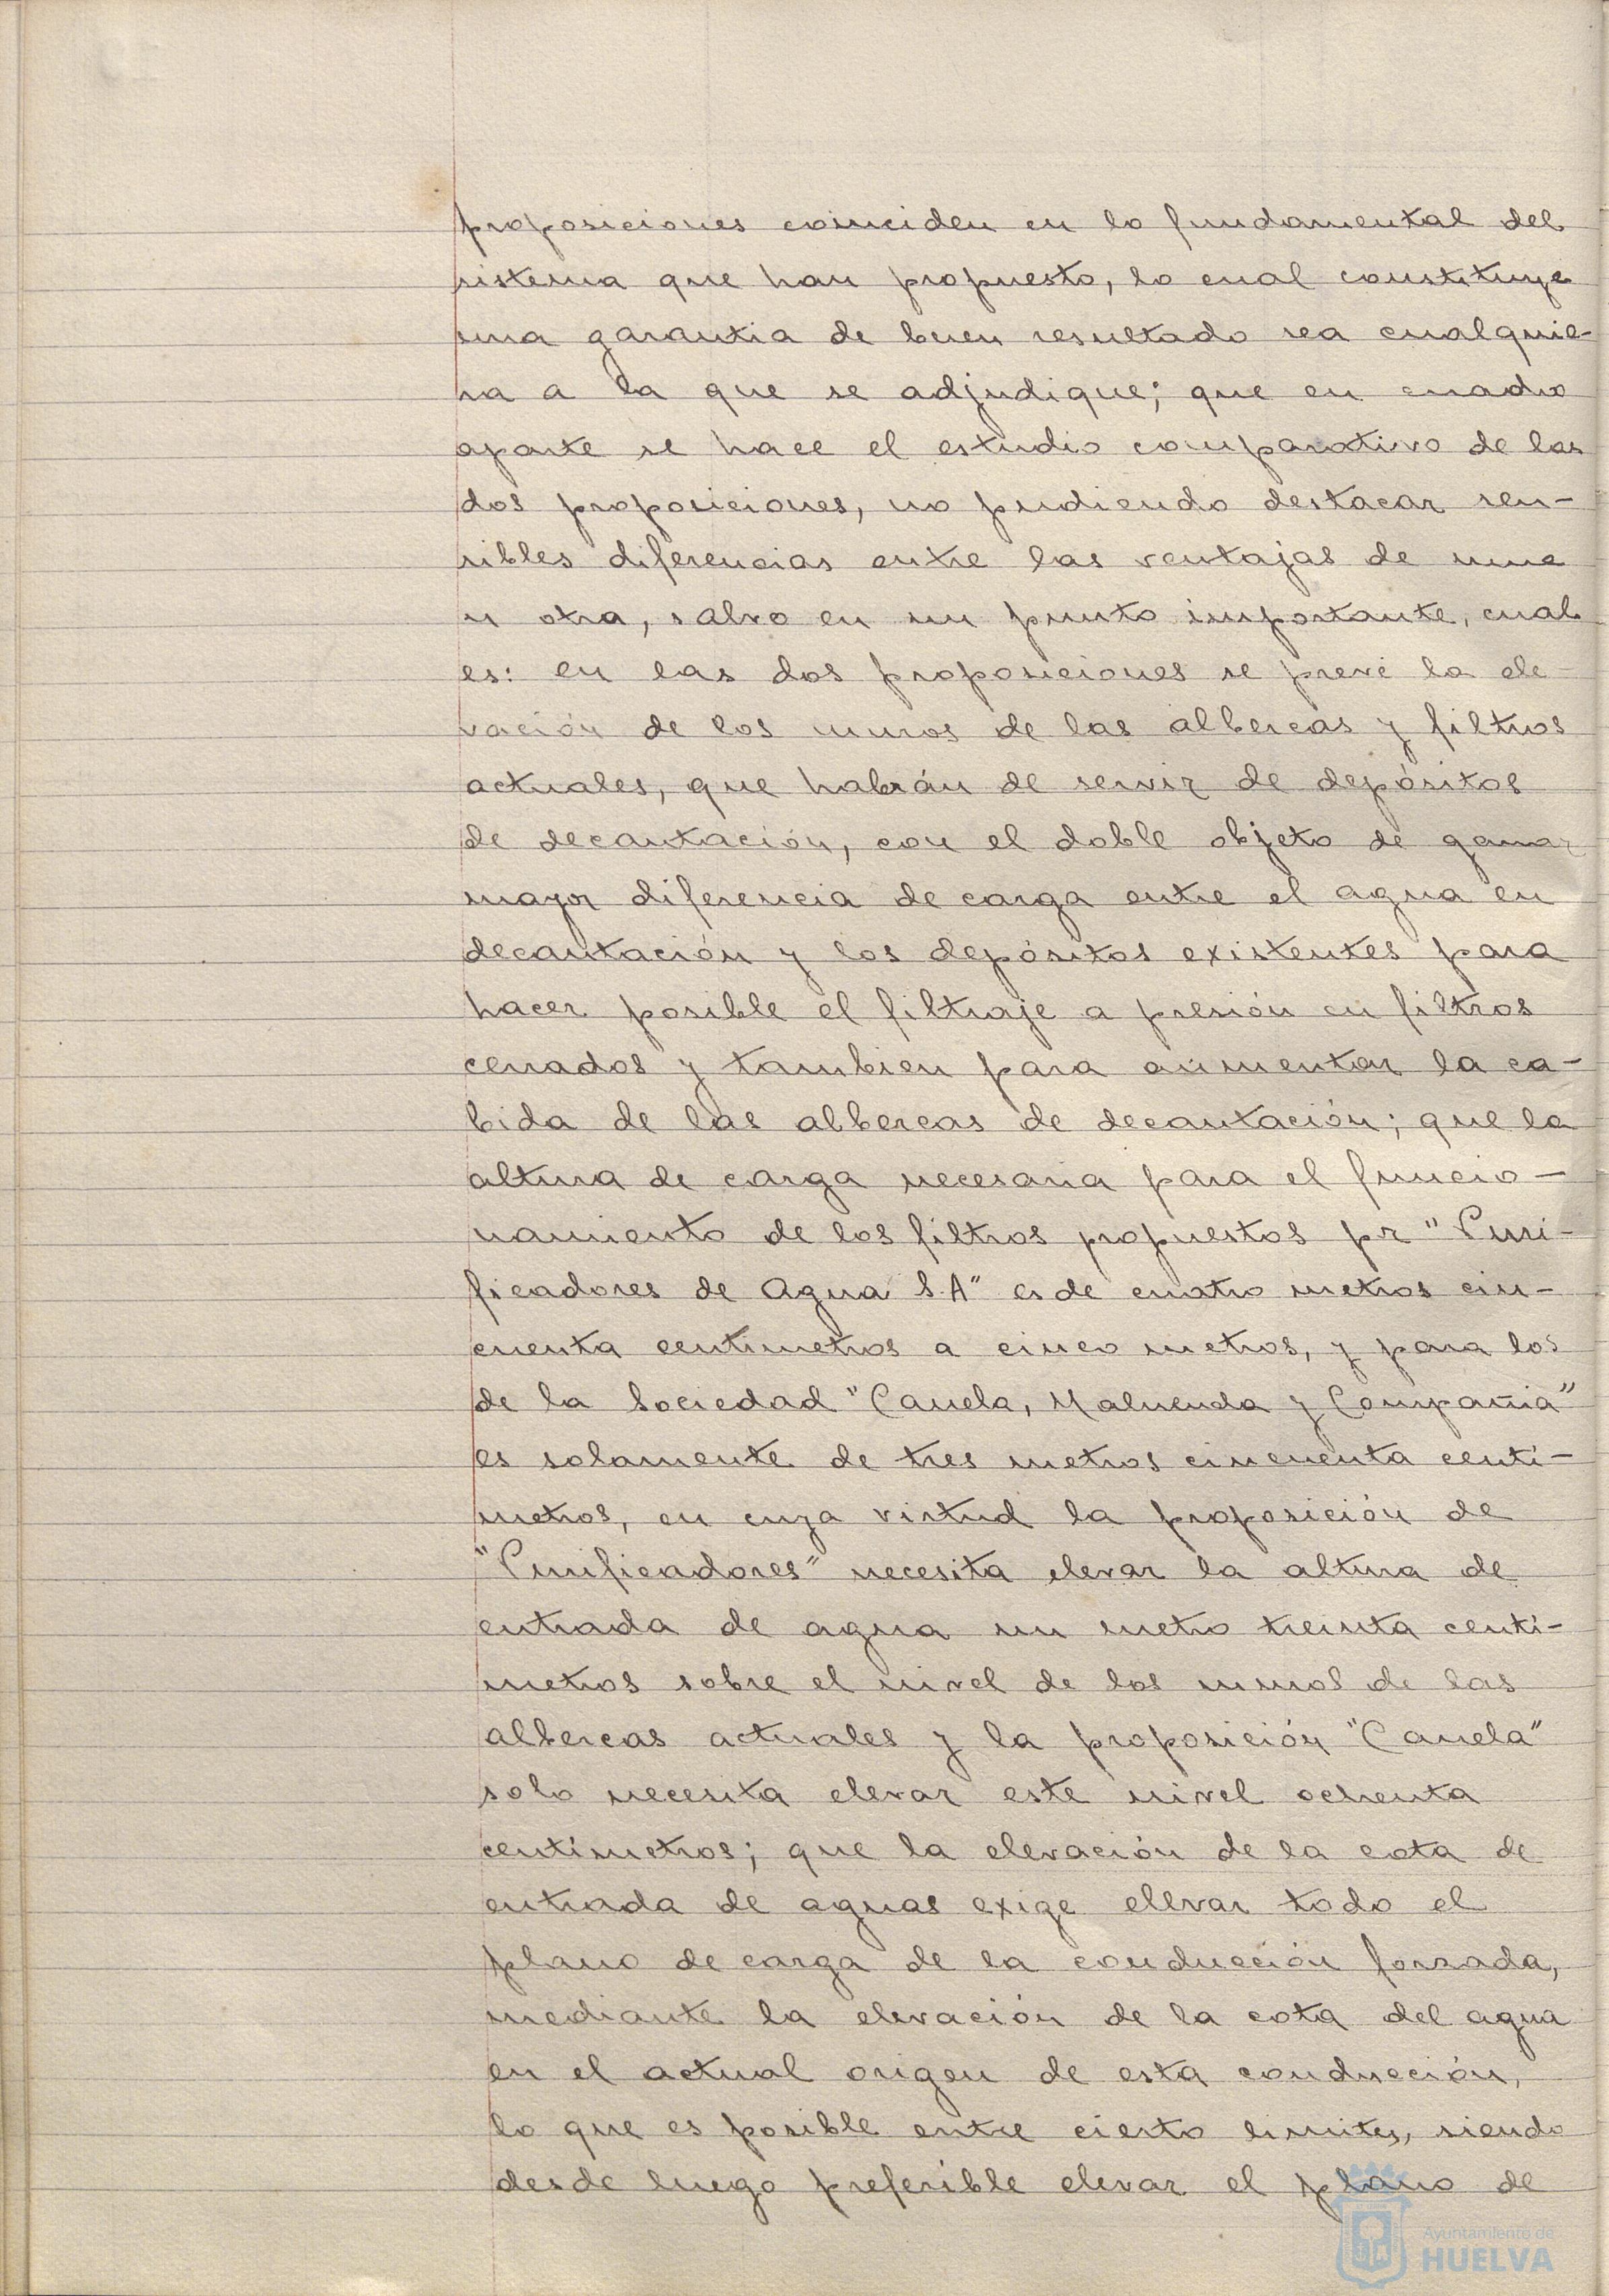 proposiciones coinciden en lo fundamental del
sistema que han propuesto, lo cual constituye
una garantia de buen resultado sea cualquie-
ra a la que se adjudique; que en cuadro
aparte se hace el estudio comparativo de las
dos proposiciones, no pudiendo destacar sen-
sibles diferencias entre las ventajas de una
u otra, salvo en un punto importante, cual
es: en las dos proposiciones se prevé la ele-
vación de los muros de las albercas y filtros
actuales, que habrán de servir de depósitos
de decantación, con el doble objeto de ganar
mayor diferencia de carga entre el agua en
decantación y los depósitos existentes para
hacer posible el filtraje a presión en filtros
cerrados y tambien para aumentar la ca-
bida de las albercas de decantación; que la
altura de carga necesaria para el funcio-
namiento de los filtros propuestos pr "Puri-
ficadores de Agua S.A" es de cuatro metros cin-
cuenta centimetros a cinco metros, y para los
de la Sociedad "Canela, Maluenda y Compañia"
es solamente de tres metros cincuenta centí-
metros, en cuya virtud la proposición de
"Purificadores" necesita elevar la altura de
entrada de agua un metro treinta centí-
metros sobre el nivel de los muros de las
albercas actuales y la proposición "Canela"
solo necesita elevar este nivel ochenta
centímetros; que la elevación de la cota de
entrada de aguas exige elevar todo el
plano de carga de la conducción forzada,
mediante la elevación de la cota del agua
en el actual origen de esta conducción,
lo que es posible entre cierto limites, siendo
desde luego preferible elevar el plano de
Ayuntamiento de
HUELVA